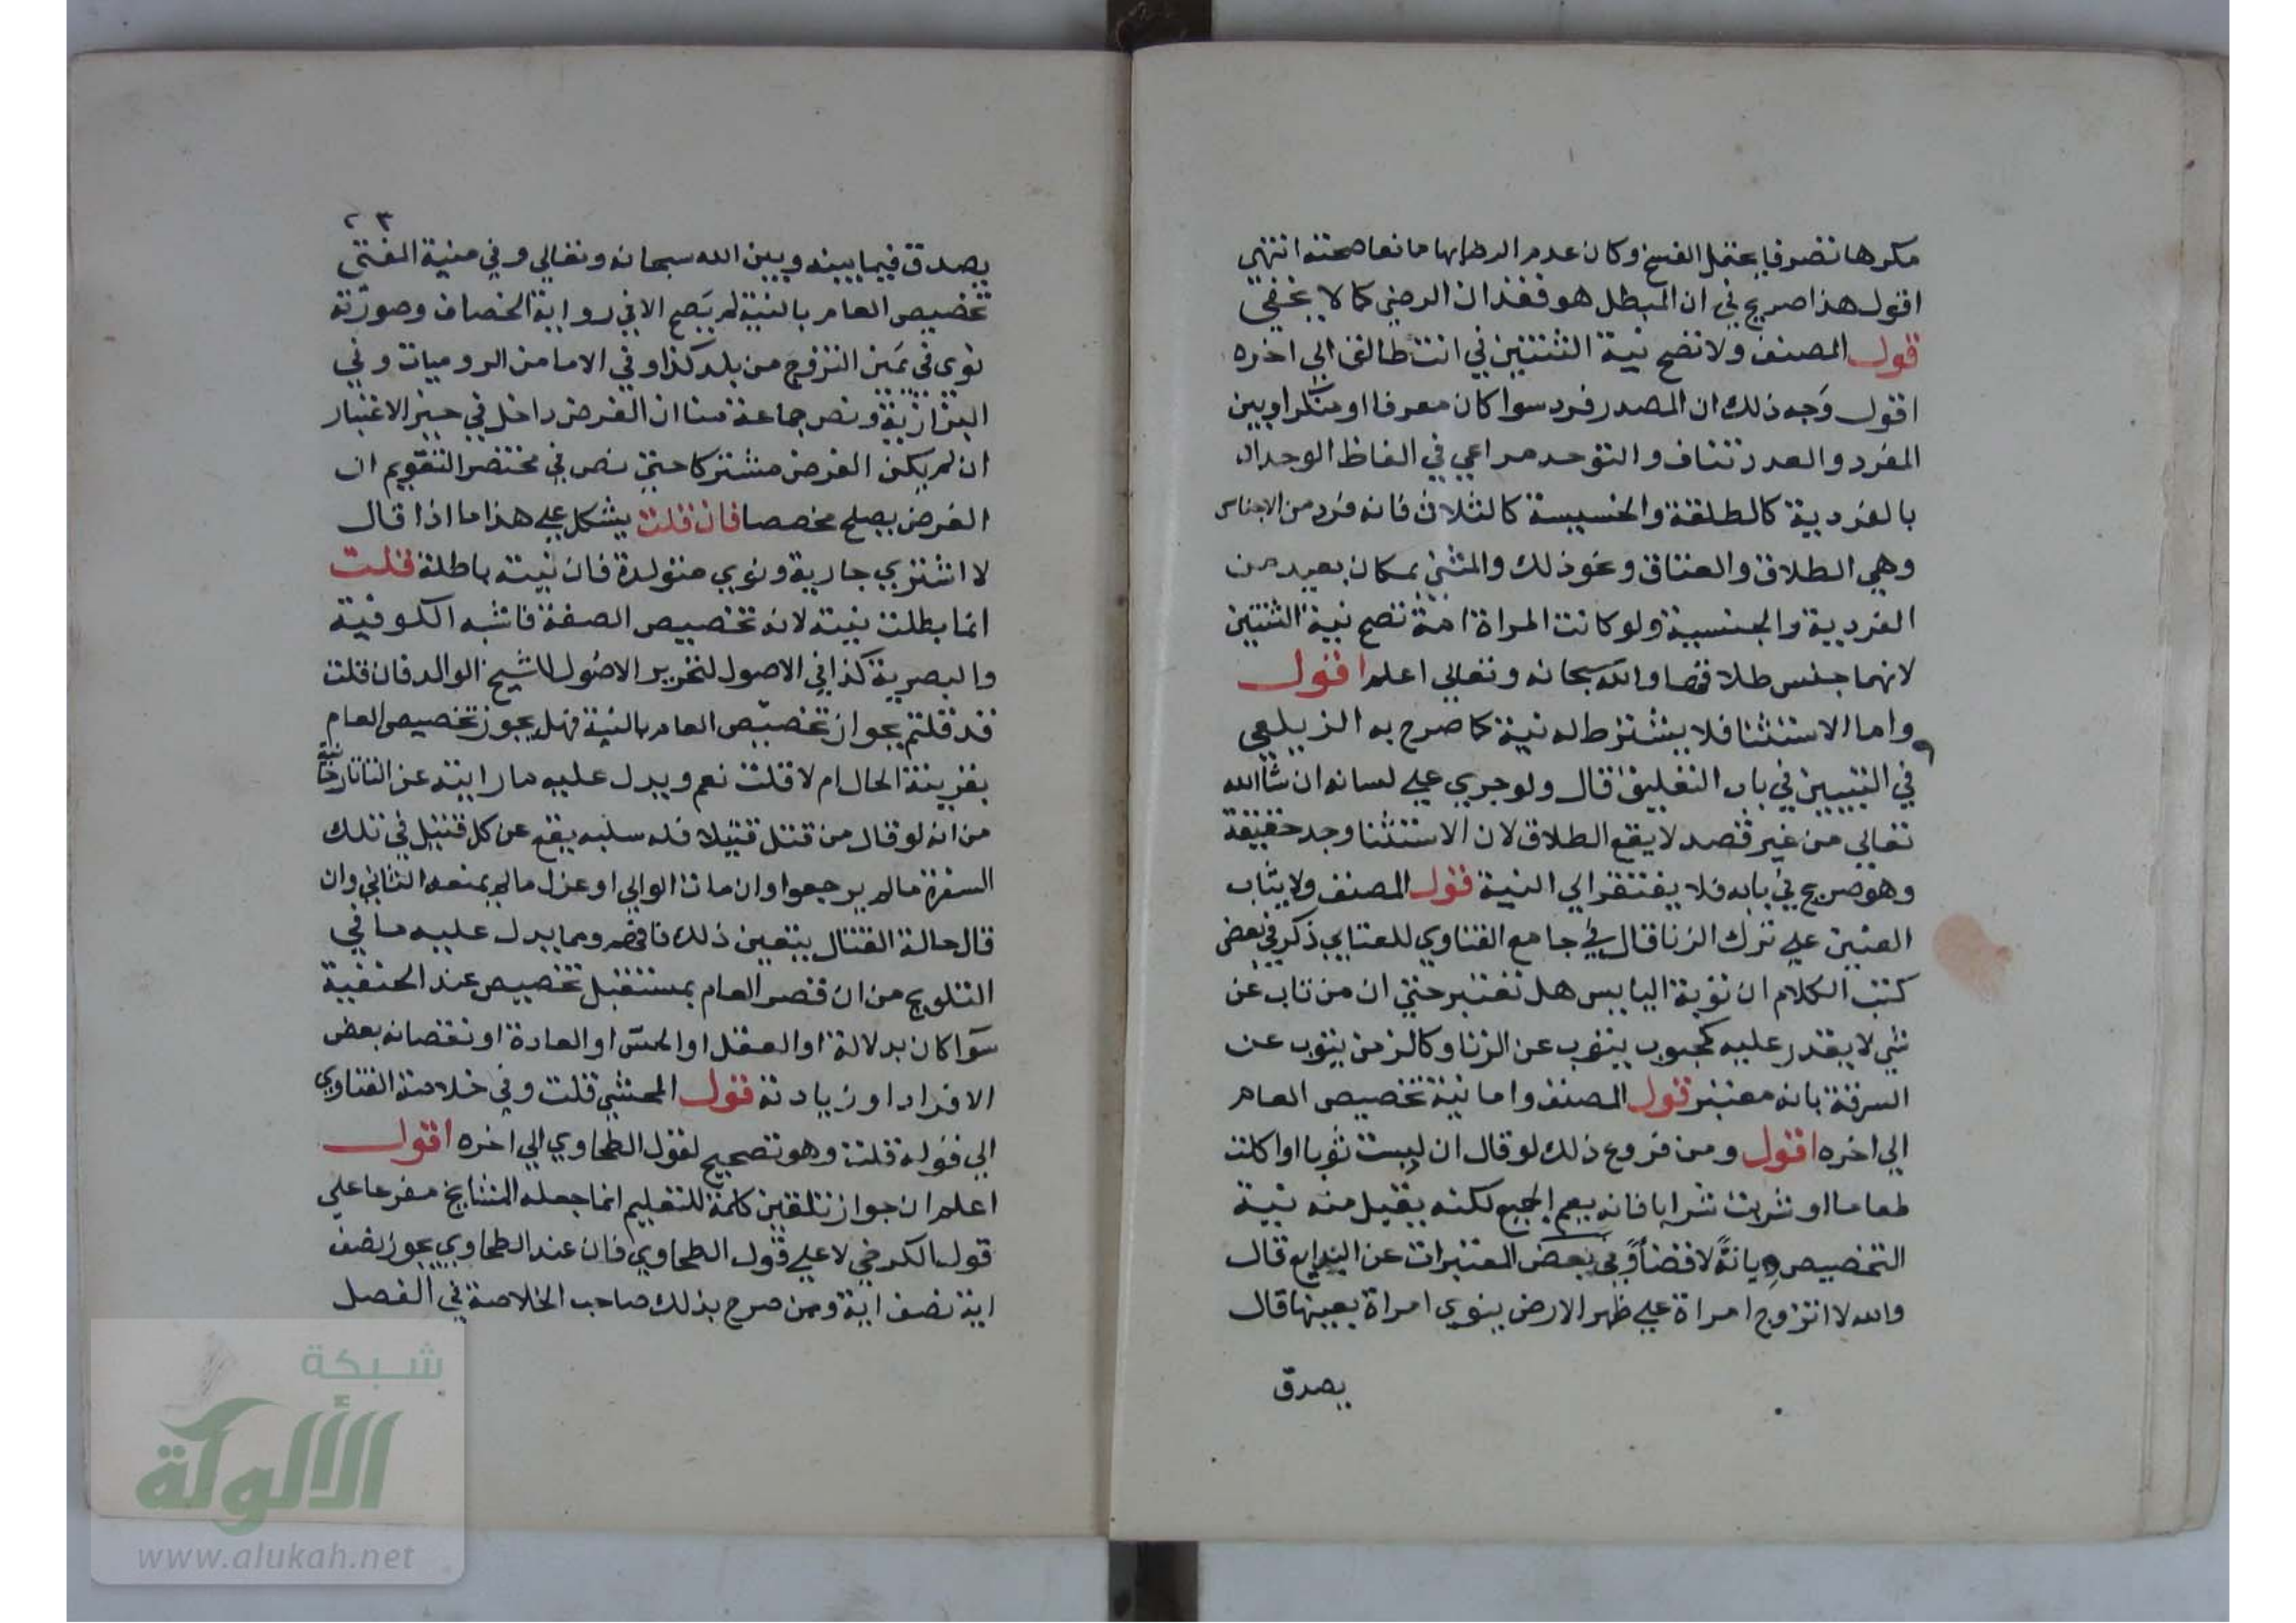 مكرها تصرفا يحتمل الفسخ وكان عدم الرضابها مانعا صحته انتهى
اقول هذا صريح في ان المبطل هو فقدان الرضى كما لا يخفى
قول المصنف ولا تصح نية الثنتين في انت طالق الى اخره
اقول وجه ذلك ان المصدر فرد سوا كان معرفا او منكرا وبين
المفرد والعدد تناف والتوحد مراعى في الفاظ الوحدان
بالفردية كالطلقة والجنسية كالثلاث فانه فرد من الاجناس
وهي الطلاق والعتاق ونحو ذلك والمثنى بمكان بعيد من
الفردية والجنسية ولو كانت المراة امة تصح نية الثنتين
لانهما جنس طلاقها والله سبحانه وتعالى اعلم اقول
واما الاستثنا فلا يشترط له نية كما صرح به الزيلعي
في التبيين في باب التعليق قال ولو جرى على لسانه ان شاالله
تعالى من غير قصد لا يقع الطلاق لان الاستثنا وجد حقيقة
وهو صريح في بابه فلا يفتقر الى النية قول المصنف ولا يثاب
العنين على ترك الزنا قال في جامع الفتاوي للعتابي ذكر في بعض
كتب الكلام ان توبة اليابس هل تعتبر حتى ان من تاب عن
شي لا يقدر عليه كمجبوب يتوب عن الزنا وكالزمن يتوب عن
السرقة بانه معتبر قول المصنف واما نية تخصيص العام
الى اخره اقول ومن فروع ذلك لو قال ان لبست ثوبا او اكلت
طعاما او شربت شرابا فانه يعم الجميع لكنه يقبل منه نية
التخصيص ديانة لا قضا وفي بعض المعتبرات عن البدايع قال
والله لا اتزوج امراة على ظهر الارض ينوي امراة بعينها قال
يصدق
٢٣
يصدق فيما بينه وبين الله سبحانه وتعالى وفي منية المفتي
تخصيص العام بالنية لم يصح الا في رواية الخصاف وصورته
نوى في يمين التزوج من بلد كذا وفي الاما من الروميات وفي
البزازية ونص جماعة منا ان الغرض داخل في حيز الاعتبار
ان لم يكن الغرض مشتركا حتى نص في مختصر التقويم ان
الغرض يصلح مخصصا فان قلت يشكل على هذا ما اذا قال
لا اشتري جارية ونوى متولدة فان نيته باطلة قلت
انما بطلت نيته لانه تخصيص الصفة فاشبه الكوفية
والبصرية كذا في الاصول لتحرير الاصول للشيخ الوالد فان قلت
قد قلتم بجواز تخصيص العام بالنية فهل يجوز تخصيص العام
بقرينة الحال ام لا قلت نعم ويدل عليه ما رايته عن التاتارخانية
من انه لو قال من قتل قتيلا فله سلبه يقع عن كل قتيل في تلك
السفرة مالم يرجعوا وان مات الوالي او عزل مالم يمنعه الثاني وان
قال حالة القتال يتعين ذلك فافهم ومما يدل عليه ما في
التلويح من ان قصر العام بمستقبل تخصيص عند الحنفية
سوا كان بدلالة او العقل او الحس او العادة او نقصانه بعض
الافراد او زيادته قول المحشي قلت وفي خلاصة الفتاوي
الى قوله قلت وهو تصحيح لقول الطحاوي الى اخره اقول
اعلم ان جواز تلقين كلمة للتعليم انما جعله المشايخ مفرعا على
قول الكرخي لا على قول الطحاوي فان عند الطحاوي يجوز نصف
اية نصف اية وممن صرح بذلك صاحب الخلاصة في الفصل
شبكة
الألوكة
www.alukah.net